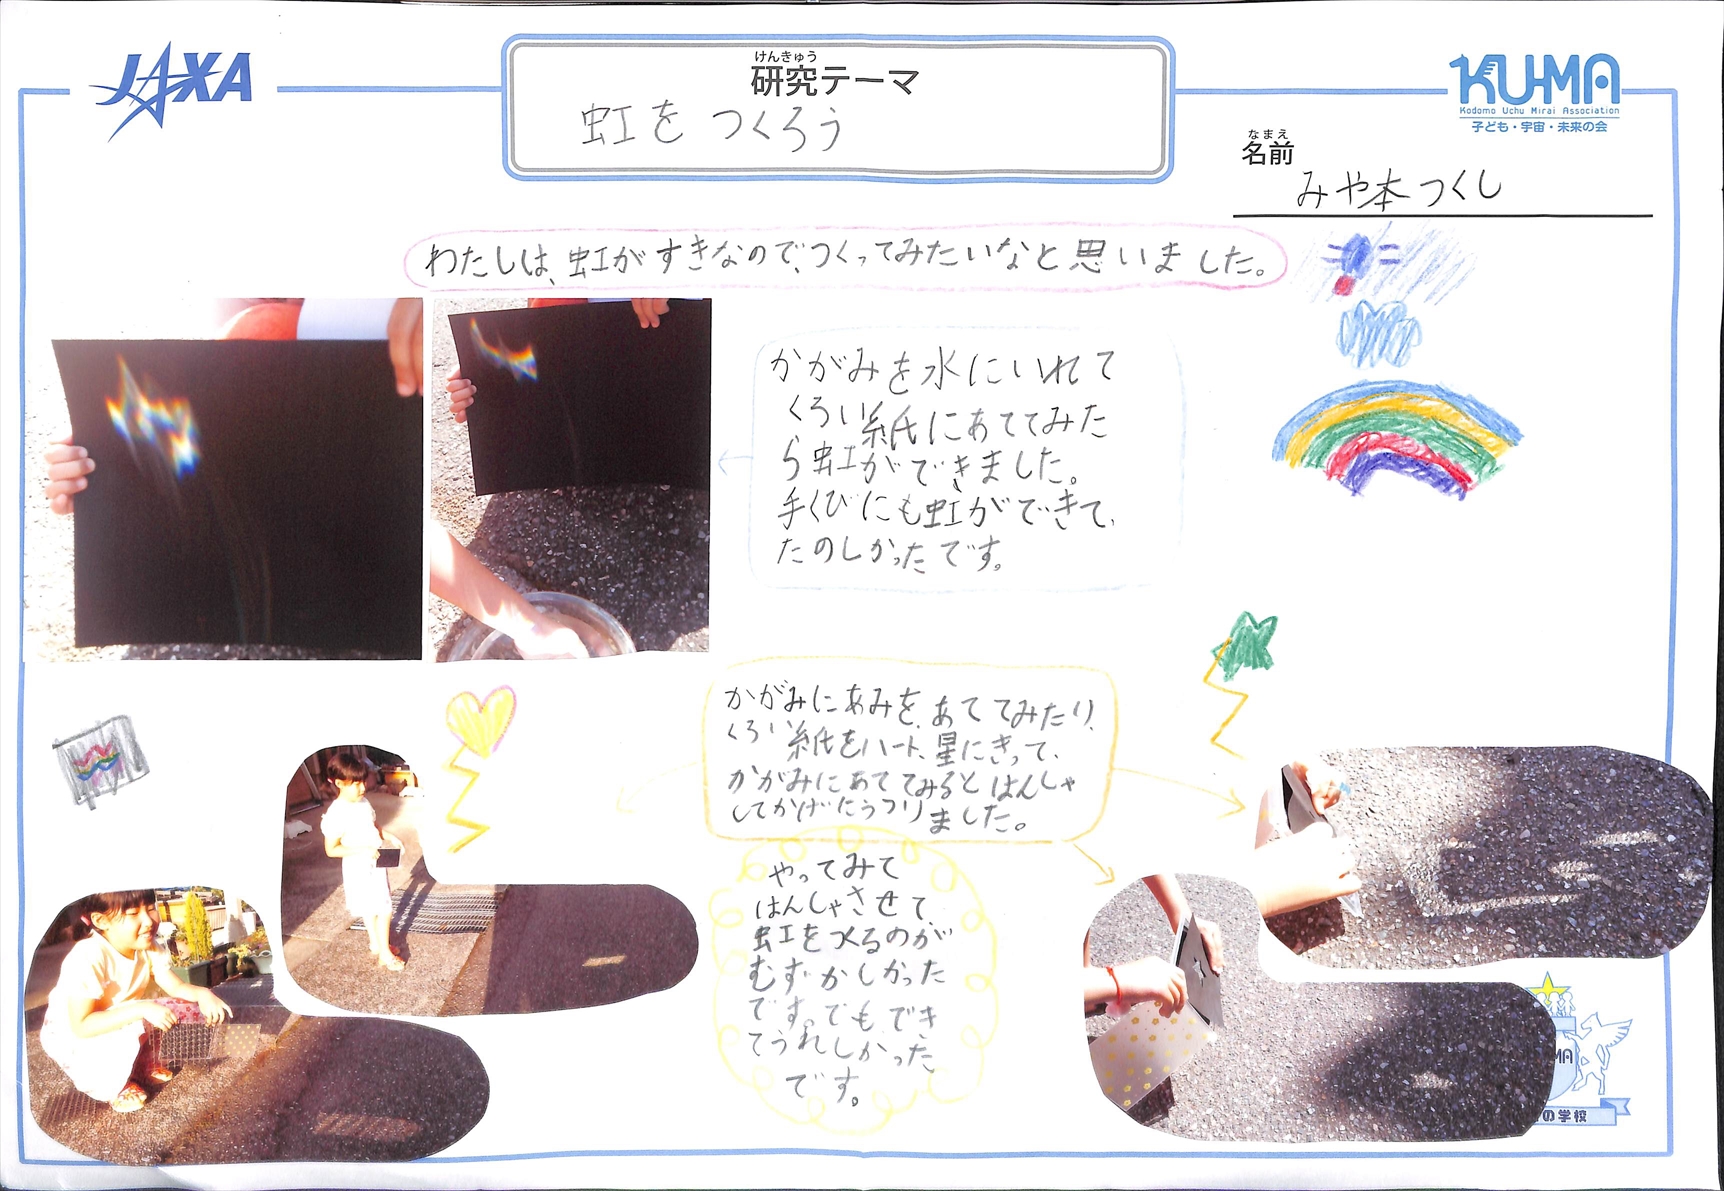 JAXA
けんきゅう
研究テーマ
虹をつくろう
KU-MA
Kodomo Uchu Mirai Association
子ども・宇宙・未来の会
なまえ
名前
みや本つくし
わたしは、虹がすきなので、つくってみたいなと思いました。
かがみを水にいれて
くろい紙にあててみた
ら虹ができました。
手くびにも虹ができて、
たのしかったです。
かがみにあみを、あててみたり、
くろい紙をハート、星にきって、
かがみにあててみるとはんしゃ
してかげにうつりました。
やってみて
はんしゃさせて、
虹をつくるのが
むずかしかった
です。でも、でき
てうれしかった
です。
MA
の学校